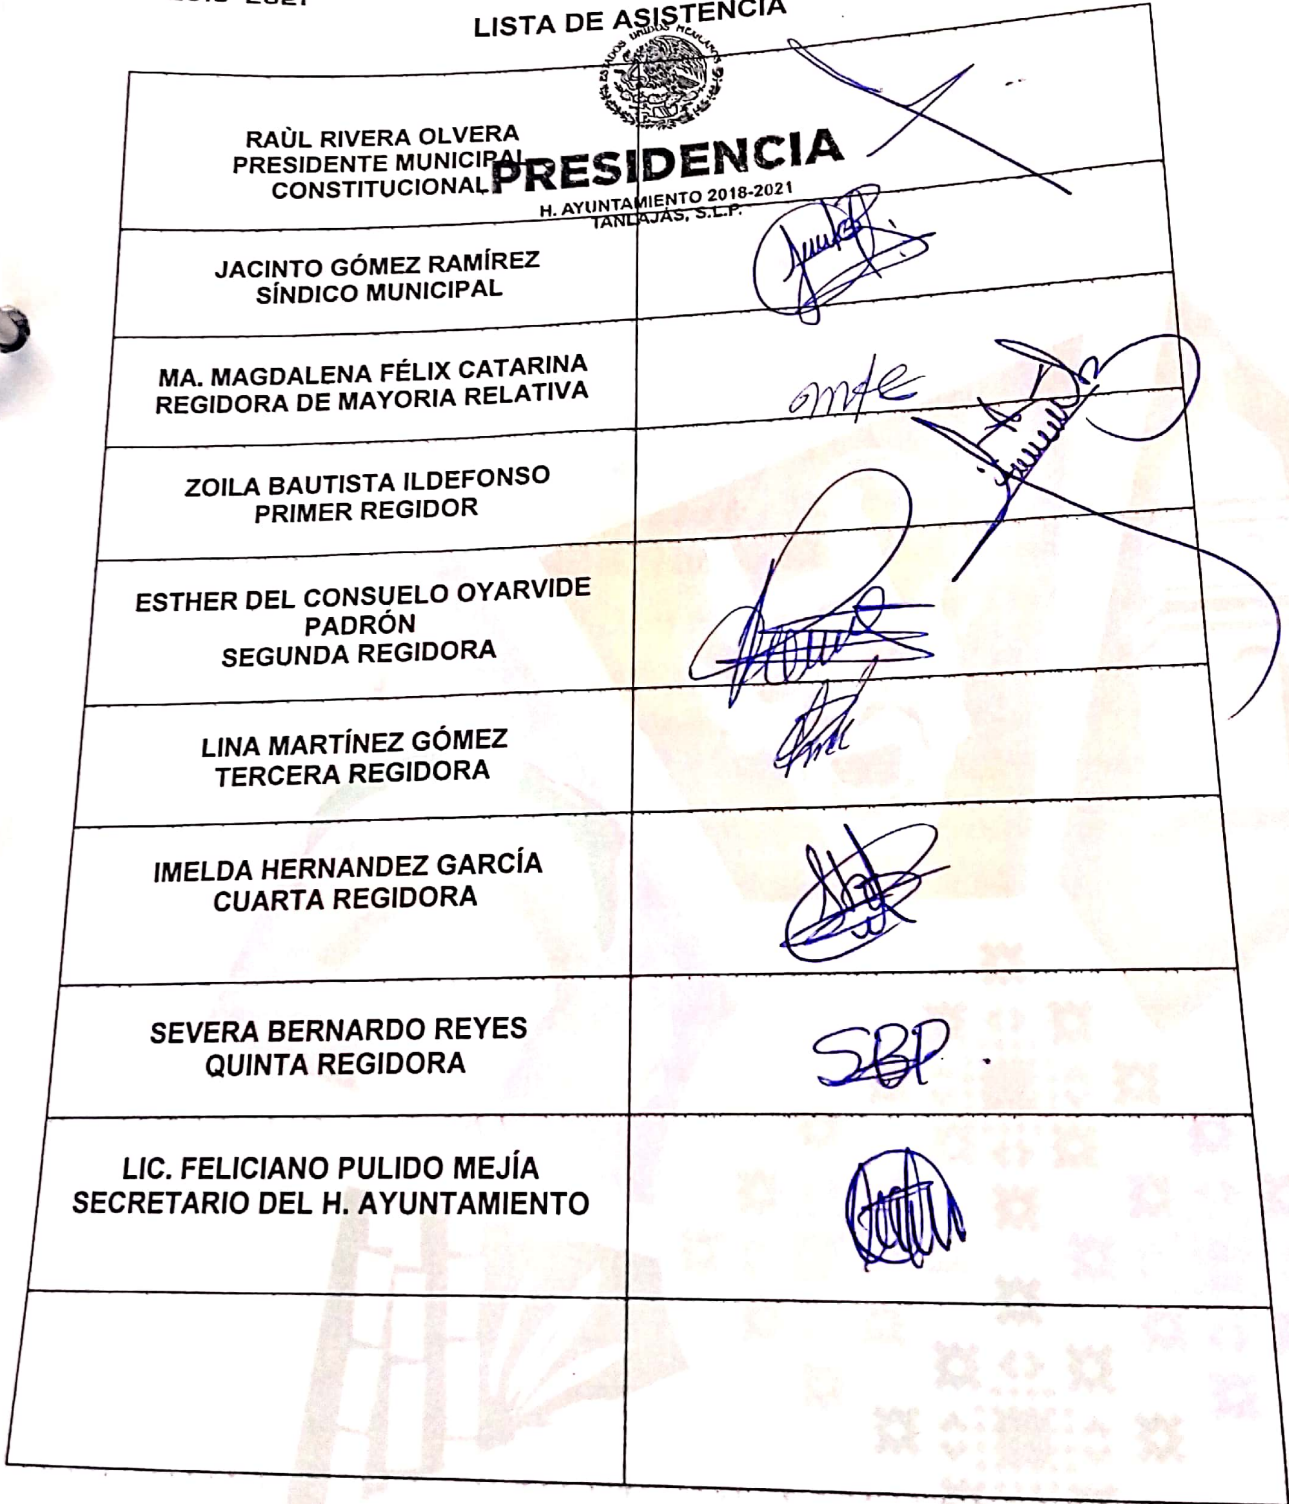 LISTA DE ASISTENCIA
ESTADOS UNIDOS MEXICANOS
RAÙL RIVERA OLVERA
PRESIDENTE MUNICIPAL
CONSTITUCIONAL
PRESIDENCIA
H. AYUNTAMIENTO 2018-2021
TANLAJÁS, S.L.P.
JACINTO GÓMEZ RAMÍREZ
SÍNDICO MUNICIPAL
MA. MAGDALENA FÉLIX CATARINA
REGIDORA DE MAYORIA RELATIVA
mfc
ZOILA BAUTISTA ILDEFONSO
PRIMER REGIDOR
ESTHER DEL CONSUELO OYARVIDE
PADRÓN
SEGUNDA REGIDORA
LINA MARTÍNEZ GÓMEZ
TERCERA REGIDORA
IMELDA HERNANDEZ GARCÍA
CUARTA REGIDORA
SEVERA BERNARDO REYES
QUINTA REGIDORA
SBP
LIC. FELICIANO PULIDO MEJÍA
SECRETARIO DEL H. AYUNTAMIENTO